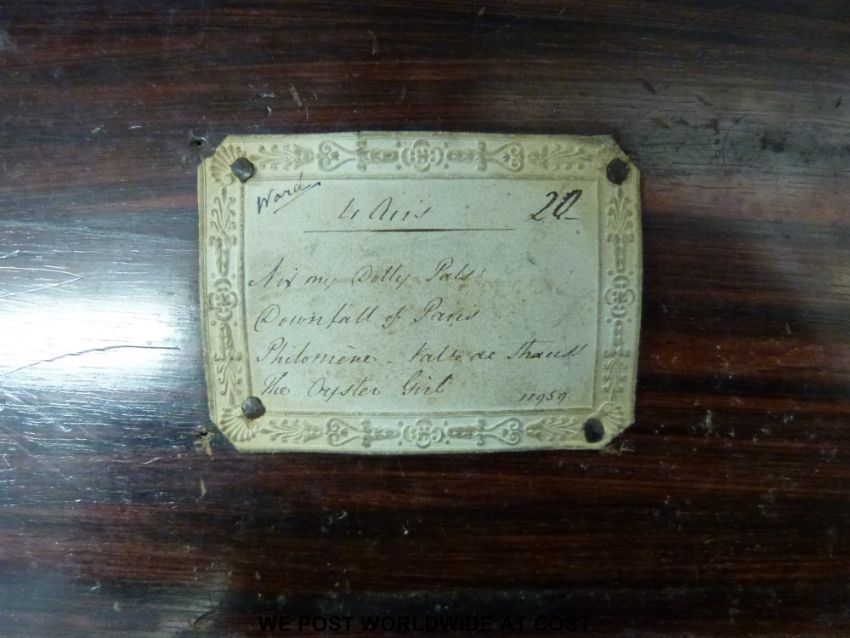 Ward
4 Airs 20
Nix my Dolly Pals
Downfall of Paris
Philomène - Valse de Strauss
The Oyster Girl 11959
WE POST WORLDWIDE AT COST